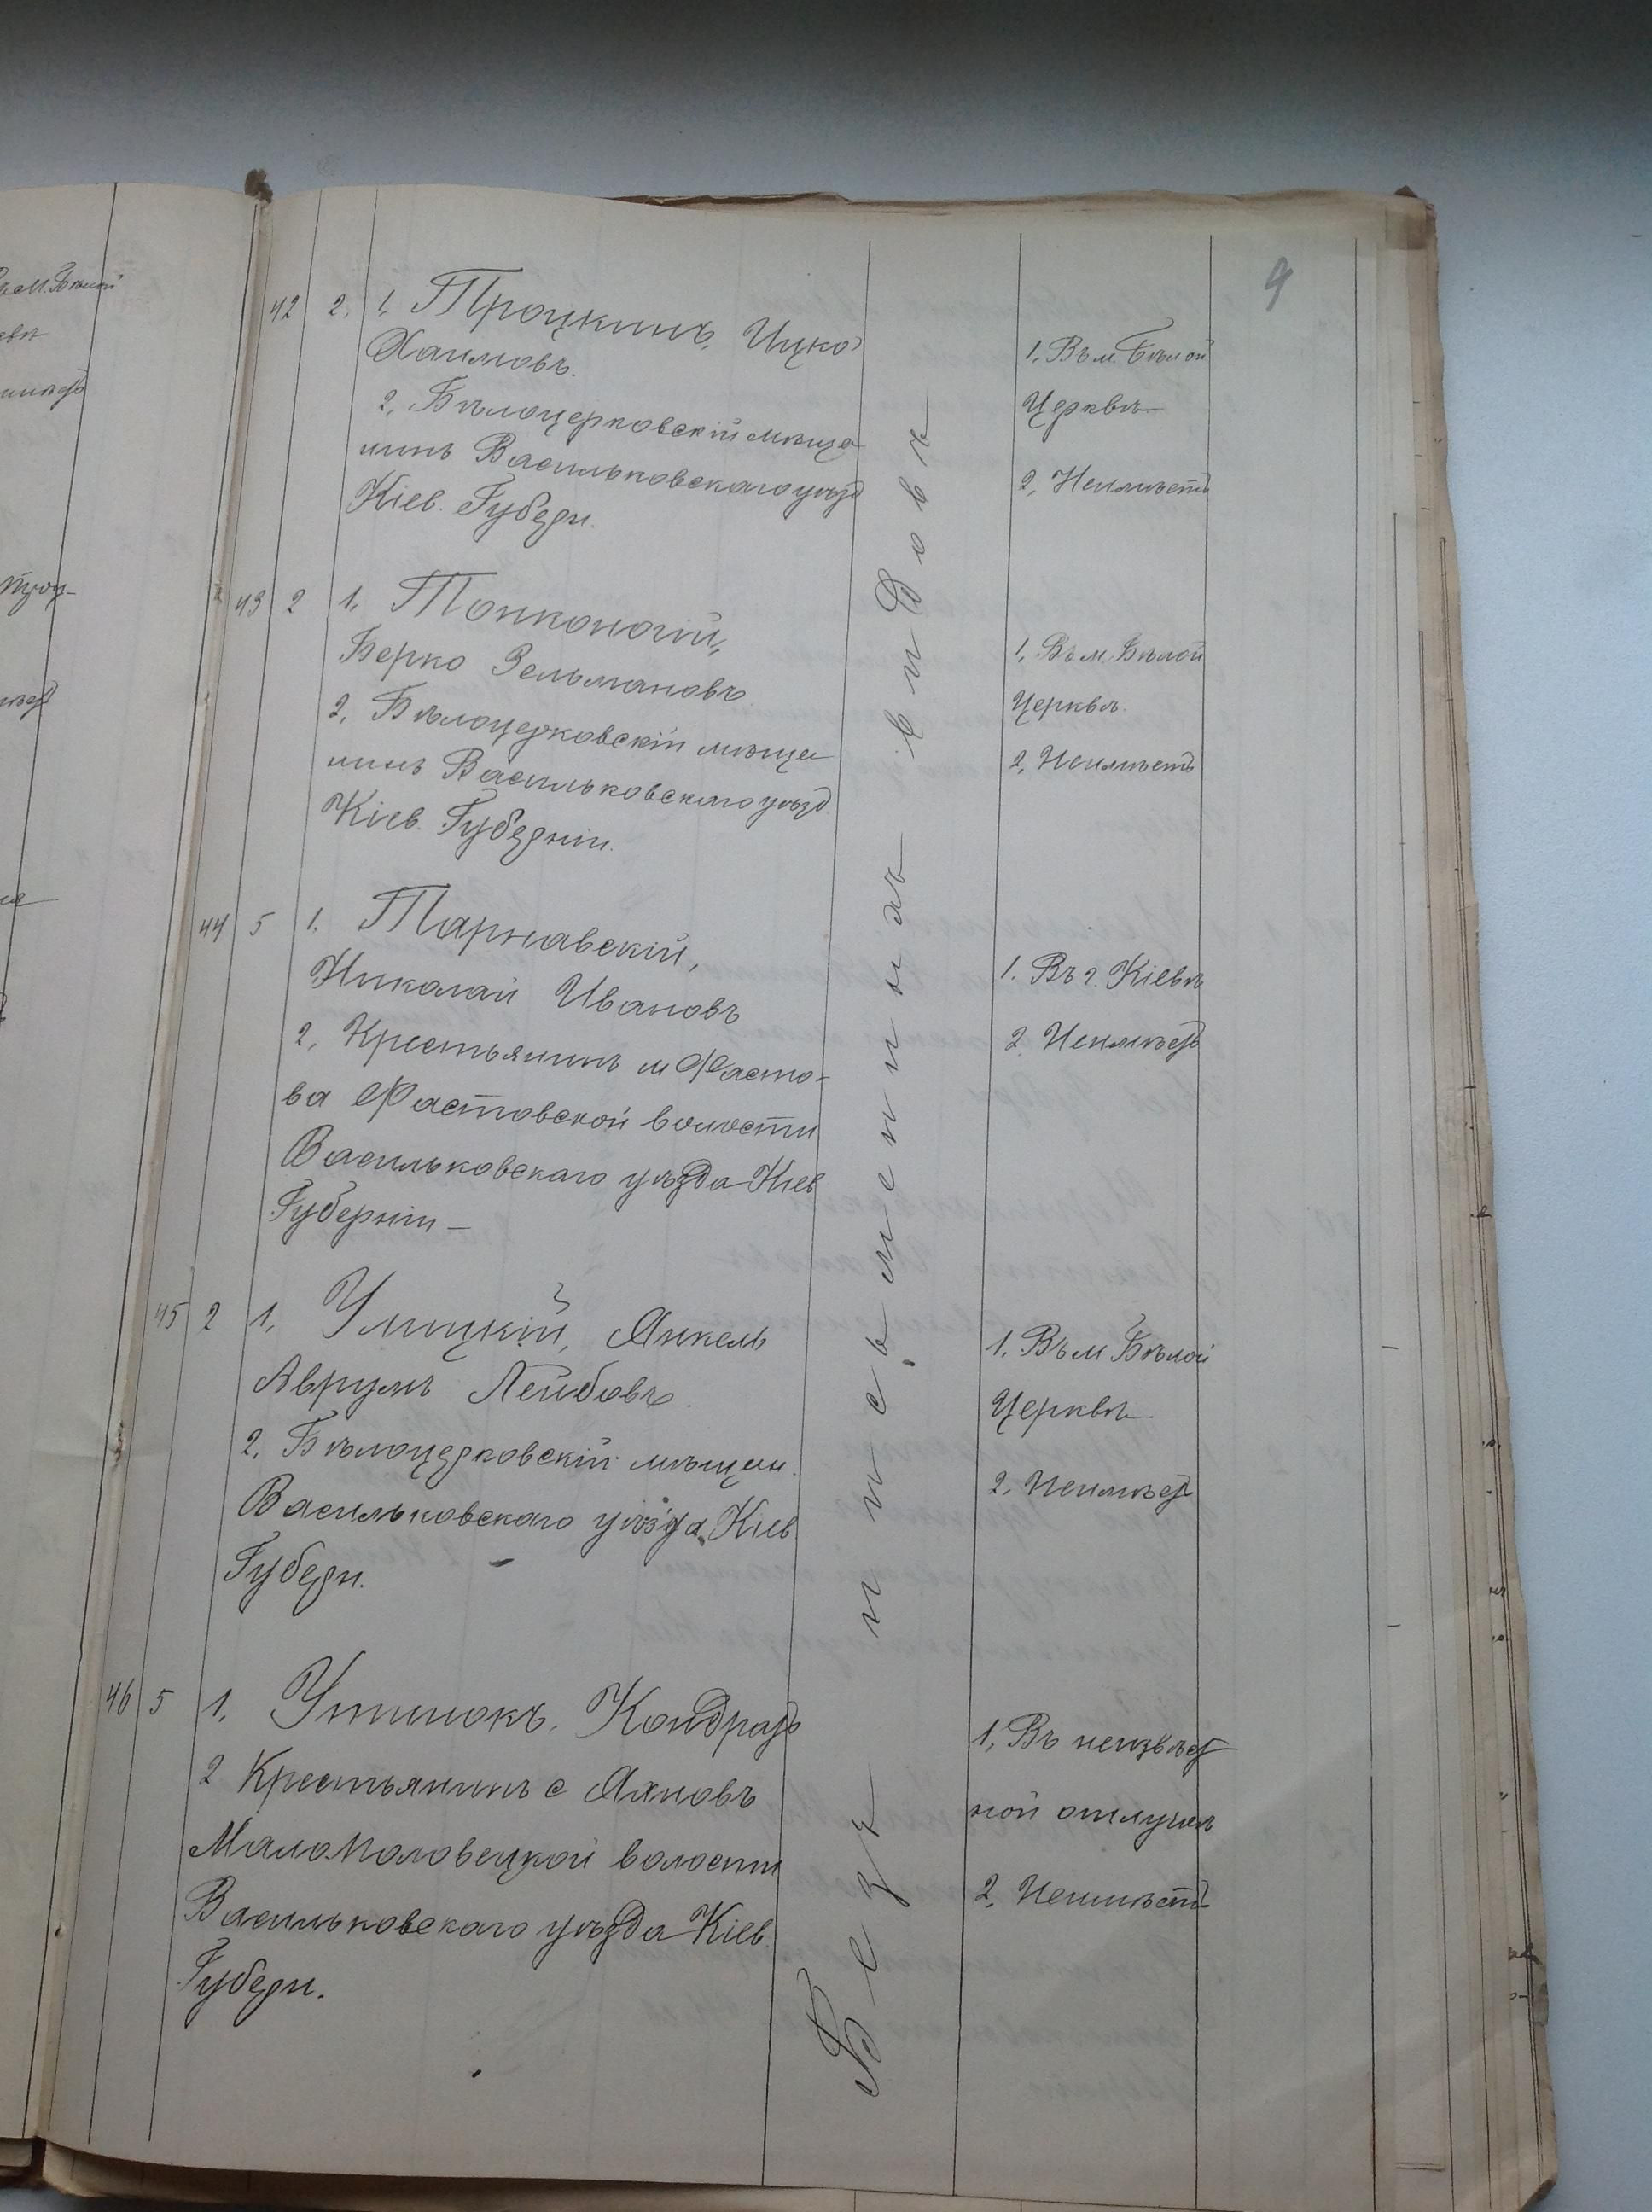 9
42 2. 1. Троцкинъ, Ицко
Хаимовъ.
2, Бѣлоцерковскій мѣща
нинъ Васильковскаго уѣзд
Кіев. Губерн.
1. Въ м. Бѣлой
Церквѣ
2, Неимѣетъ
43 2 1. Тонконогій,
Берко Зельмановъ
2, Бѣлоцерковскій мѣща
нинъ Васильковскаго уѣзд.
Кіев. Губерніи.
1, Въ м. Бѣлой
Церквѣ.
2, Неимѣетъ
44 5 1. Тарнавскій,
Николай Ивановъ
2, Крестьянинъ м Фасто-
ва Фастовской волости
Васильковскаго уѣзда Кіев
Губерніи —
1. Въ г. Кіевѣ
2 Неимѣет
45 2 1, Улицкій, Янкель
Аврумъ Лейбовъ
2, Бѣлоцерковскій мѣщан.
Васильковскаго уѣзда Кіев
Губерн.
1, Въ м Бѣлой
Церквѣ
2, Неимѣет
46 5 1, Утинокъ, Кондрат
2 Крестьянинъ с Яхновъ
Мало Половецкой волости
Васильковскаго уѣзда Кіев
Губерн.
1, Въ неизвѣст
ной отлучкѣ
2, Неимѣетъ
Безъ письменныхъ видовъ